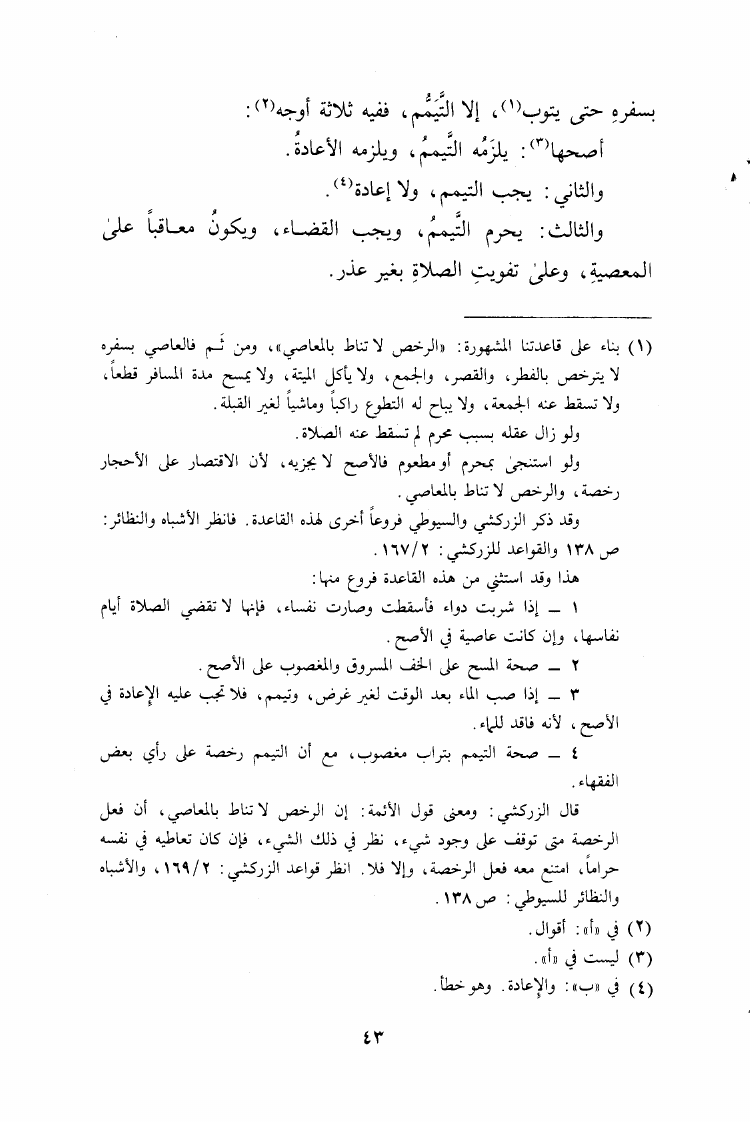 بسفرهِ حتى يتوب(١)، إلا التَّيَمُّم، ففيه ثلاثة أوجه(٢):
أصحها(٣): يلزَمُه التَّيممُ، ويلزمه الأعادةُ.
والثاني: يجب التيمم، ولا إعادة(٤).
والثالث: يحرم التَّيممُ، ويجب القضاء، ويكونُ معاقباً علىٰ
المعصيةِ، وعلىٰ تفويتِ الصلاةِ بغير عذر.
(١) بناء على قاعدتنا المشهورة: «الرخص لا تناط بالمعاصي»، ومن ثَم فالعاصي بسفره
لا يترخص بالفطر، والقصر، والجمع، ولا يأكل الميتة، ولا يمسح مدة المسافر قطعاً،
ولا تسقط عنه الجمعة، ولا يباح له التطوع راكباً وماشياً لغير القبلة.
ولو زال عقله بسبب محرم لم تسقط عنه الصلاة.
ولو استنجىٰ بمحرم أو مطعوم فالأصح لا يجزيه، لأن الاقتصار على الأحجار
رخصة، والرخص لا تناط بالمعاصي.
وقد ذكر الزركشي والسيوطي فروعاً أخرى لهذه القاعدة. فانظر الأشباه والنظائر:
ص ١٣٨ والقواعد للزركشي: ١٦٧/٢.
هذا وقد استثني من هذه القاعدة فروع منها:
١ ــ إذا شربت دواء فأسقطت وصارت نفساء، فإنها لا تقضي الصلاة أيام
نفاسها، وإن كانت عاصية في الأصح.
٢ ــ صحة المسح على الخف المسروق والمغصوب على الأصح.
٣ ــ إذا صب الماء بعد الوقت لغير غرض، وتيمم، فلا تجب عليه الإعادة في
الأصح، لأنه فاقد للماء.
٤ ــ صحة التيمم بتراب مغصوب، مع أن التيمم رخصة على رأي بعض
الفقهاء.
قال الزركشي: ومعنى قول الأئمة: إن الرخص لا تناط بالمعاصي، أن فعل
الرخصة متى توقف على وجود شيء، نظر في ذلك الشيء، فإن كان تعاطيه في نفسه
حراماً، امتنع معه فعل الرخصة، وإلا فلا. انظر قواعد الزركشي: ١٦٩/٢، والأشباه
والنظائر للسيوطي: ص ١٣٨.
(٢) في «أ»: أقوال.
(٣) ليست في «أ».
(٤) في «ب»: والإعادة. وهو خطأ.
٤٣